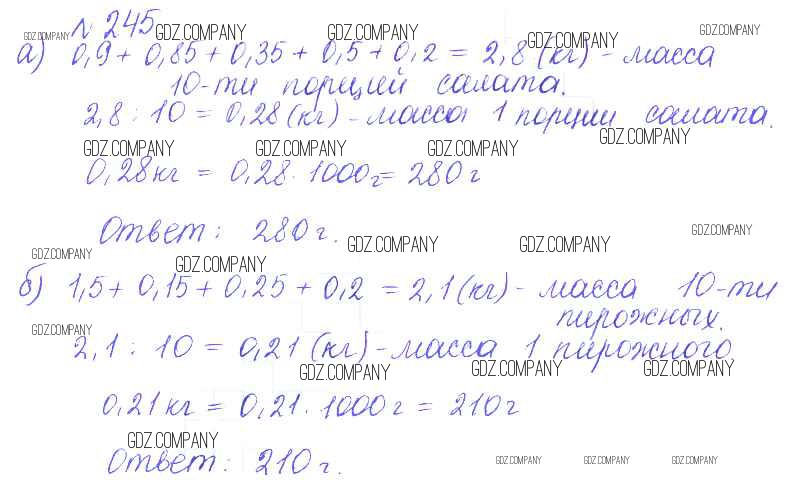 № 245
GDZ.COMPANY GDZ.COMPANY GDZ.COMPANY GDZ.COMPANY GDZ.COMPANY
а) 0,9 + 0,85 + 0,35 + 0,5 + 0,2 = 2,8 (кг) - масса
10-ти порций салата.
2,8 : 10 = 0,28 (кг) - масса 1 порции салата.
GDZ.COMPANY GDZ.COMPANY GDZ.COMPANY GDZ.COMPANY
0,28 кг = 0,28 · 1000 г = 280 г
Ответ: 280 г.
GDZ.COMPANY GDZ.COMPANY GDZ.COMPANY
GDZ.COMPANY GDZ.COMPANY
б) 1,5 + 0,15 + 0,25 + 0,2 = 2,1 (кг) - масса 10-ти
пирожных.
GDZ.COMPANY
2,1 : 10 = 0,21 (кг) - масса 1 пирожного
GDZ.COMPANY GDZ.COMPANY GDZ.COMPANY
0,21 кг = 0,21 · 1000 г = 210 г
GDZ.COMPANY
Ответ: 210 г.
GDZ.COMPANY GDZ.COMPANY GDZ.COMPANY